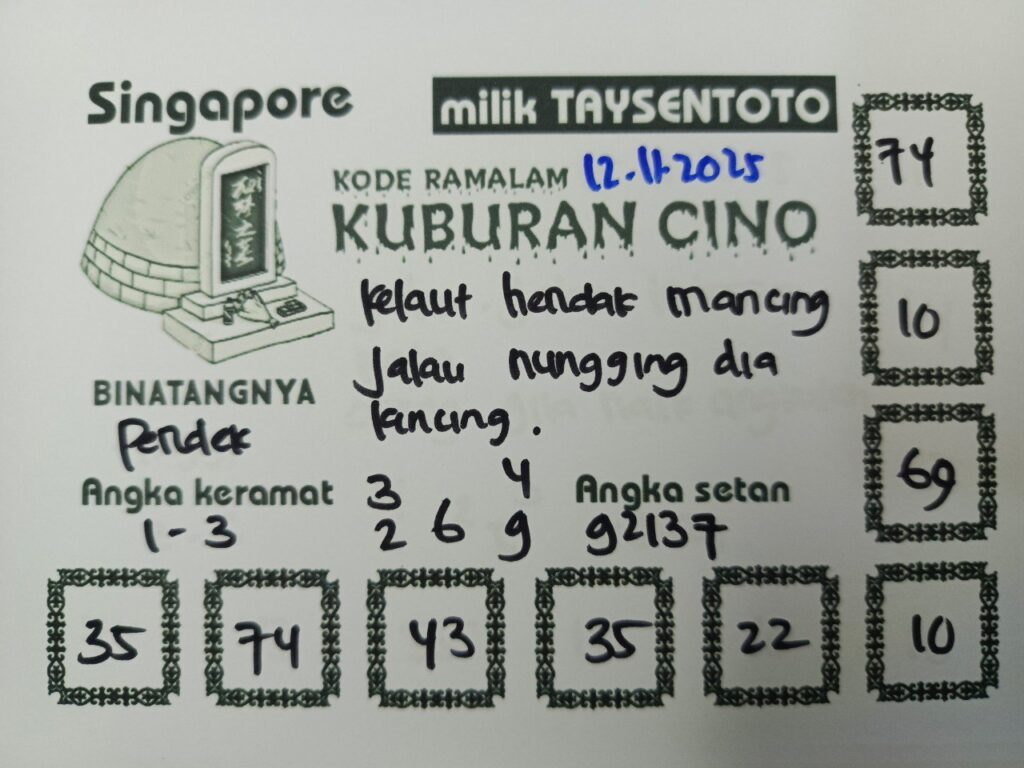 Singapore
milik TAYSENTOTO
KODE RAMALAM 12.11.2025
KUBURAN CINO
kelaut hendak mancing
Jalau nungging dia
kancing.
BINATANGNYA
Pendek
Angka keramat
1-3
3 4
2 6 9
Angka setan
92137
74
10
69
35 74 43 35 22 10